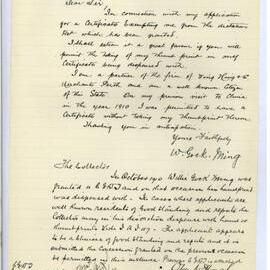 Dear Sir
In connection with my application
for a Certificate Exempting me from the dictation
test which has been granted.
I shall esteem it a great favor if you will
permit the taking of my thumb print in said
Certificate being dispensed with.
I am a partner of the firm of
Merchants Perth and am a well known Citizen
of this State. On my previous visit to China
in the year 1910 I was permitted to have a
Certificate without taking my thumbprint thereon
Thanking you in anticipation
Yours Faithfully
W. Gock Ming
The Collector
In October 1910 Willie Gock Ming was
granted a and on that occasion his handprint
was dispensed with. In cases where applicants are
well known residents of good standing and repute the
Collector may in his discretion dispense with hand or
thumbprints Vide The applicant appears
to be a man of good standing and repute and is
the Concession granted on the previous occasion
be permitted in this instance